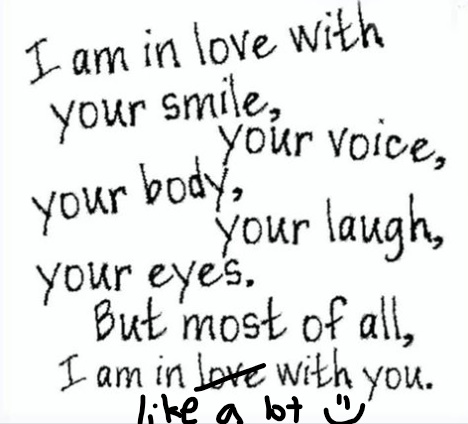 I am in love with
your smile,
your voice,
your body,
your laugh,
your eyes.
But most of all,
I am in love with you.
like a lot :)